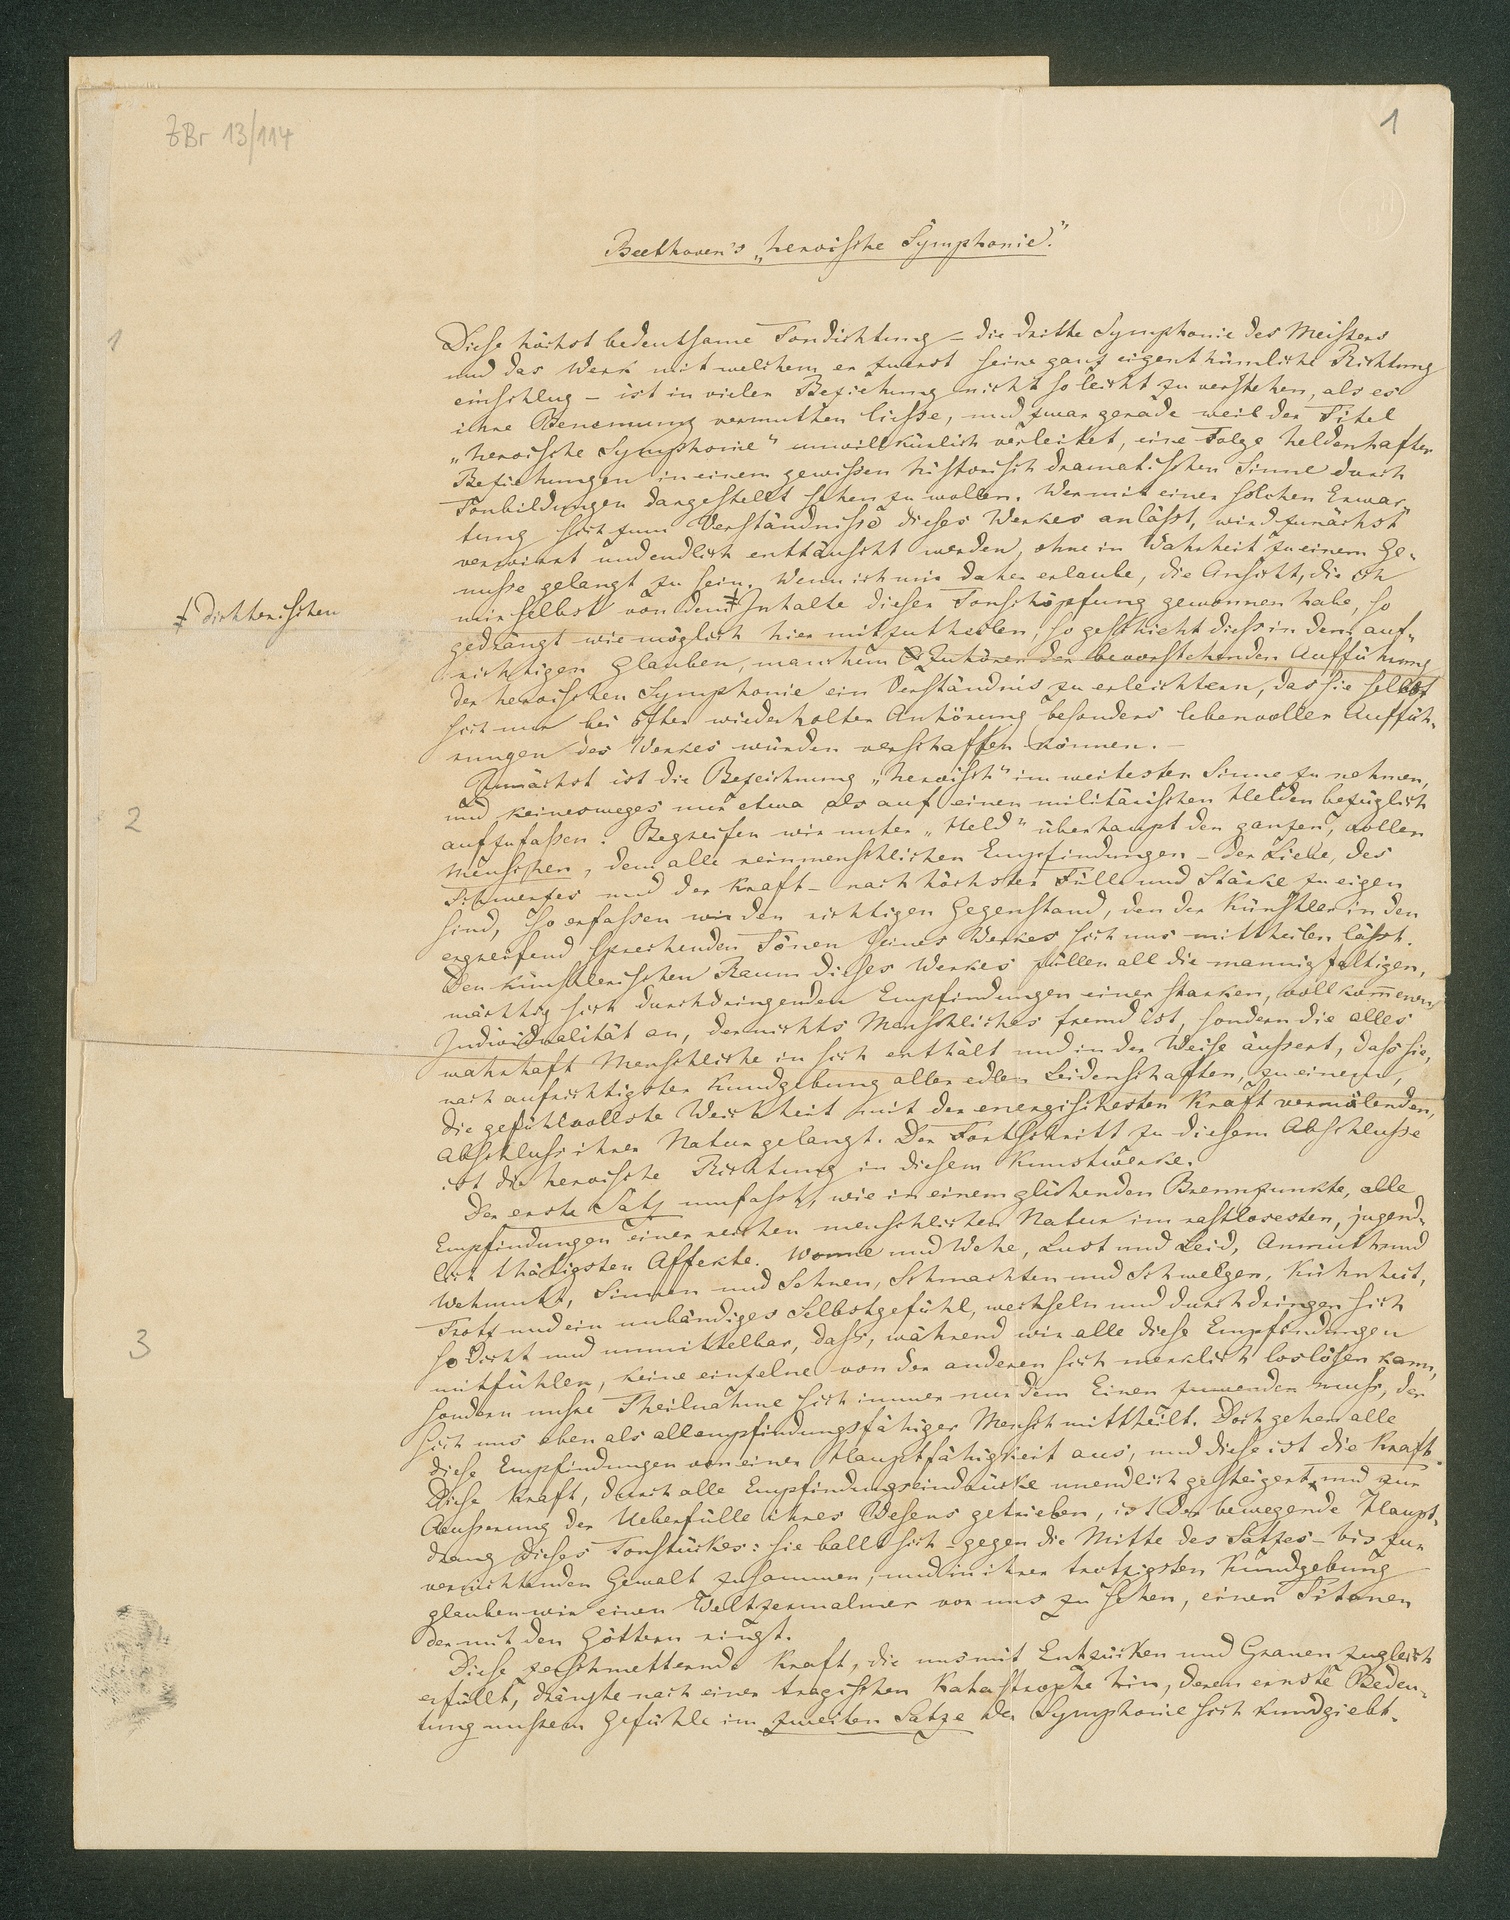 ZBr 13/114
1
Beethoven's „heroische Symphonie."
1
Diese höchst bedeutsame Tondichtung – die dritte Symphonie des Meisters
und das Werk mit welchem er zuerst seine ganz eigenthümliche Richtung
einschlug – ist in vieler Beziehung nicht so leicht zu verstehen, als es
ihre Benennung vermuthen liesse, und zwar gerade weil der Titel
„heroische Symphonie" unwillkürlich verleitet, eine Folge heldenhafter
Beziehungen in einem gewissen historisch dramatischen Sinne durch
Tonbildungen dargestellt sehen zu wollen. Wer mit einer solchen Erwar-
tung sich zum Verständnisse dieses Werkes anlässt, wird zunächst
verwirrt und endlich enttäuscht werden, ohne in Wahrheit zu einem Ge-
nusse gelangt zu sein. Wenn ich mir daher erlaube, die Ansicht, die ich
‡ dichterischen
mir selbst von dem ‡ Inhalte dieser Tonschöpfung gewonnen habe, so
gedrängt wie möglich hier mitzutheilen, so geschieht diess in dem auf-
richtigen Glauben, manchem Zuhörer der bevorstehenden Aufführung
der heroischen Symphonie ein Verständnis zu erleichtern, das sie selbst
sich nur bei öfter wiederholter Anhörung besonders lebenvoller Auffüh-
rungen des Werkes würden verschaffen können. –
Zunächst ist die Bezeichnung „heroisch" im weitesten Sinne zu nehmen,
2
und keinesweges nur etwa als auf einen militärischen Helden bezüglich
aufzufassen. Begreifen wir unter „Held" überhaupt den ganzen, vollen
Menschen, dem alle reinmenschlichen Empfindungen – der Liebe, des
Schmerzes und der Kraft – nach höchster Fülle und Stärke zu eigen
sind, so erfassen wir den richtigen Gegenstand, den der Künstler in den
ergreifend sprechenden Tönen seines Werkes sich uns mittheilen lässt.
Den künstlerischen Raum dieses Werkes füllen all die mannigfaltigen,
mächtig sich durchdringenden Empfindungen einer starken, vollkom̅enen
Individualität an, der nichts Menschliches fremd ist, sondern die alles
wahrhaft Menschliche in sich enthält und in der Weise äussert, dass sie,
nach aufrichtigster Kundgebung aller edlen Leidenschaften, zu einem,
die gefühlvollste Weichheit mit der energischesten Kraft vermälenden,
Abschluss ihrer Natur gelangt. Der Fortschritt zu diesem Abschlusse
ist die heroische Richtung in diesem Kunstwerke.
Der erste Satz umfasst, wie in einem glühenden Brennpunkte, alle
Empfindungen einer reichen menschlichen Natur im rastlosesten, jugend-
lich thätigsten Affekte. Wonne und Wehe, Lust und Leid, Anmuth und
Wehmuth, Sinnen und Sehnen, Schmachten und Schwelgen, Kühnheit,
Trotz und ein unbändiges Selbstgefühl, wechseln und durchdringen sich
3
so dicht und unmittelbar, dass, während wir alle diese Empfindungen
mitfühlen, keine einzelne von der anderen sich merklich loslösen kann,
sondern unsre Theilnahme sich immer nur dem Einen zuwenden muss, der
sich uns eben als allempfindungsfähiger Mensch mittheilt. Doch gehen alle
diese Empfindungen von einer Hauptfähigkeit aus, und diese ist die Kraft.
Diese Kraft, durch alle Empfindungseindrücke unendlich gesteigert und zur
Aeusserung der Ueberfülle ihres Wesens getrieben, ist der bewegende Haupt-
drang dieses Tonstückes: sie ballt sich – gegen die Mitte des Satzes – bis zur
vernichtenden Gewalt zusammen, und in ihrer trotzigsten Kundgebung
glauben wir einen Weltzermalmer vor uns zu sehen, einen Titanen
der mit den Göttern ringt.
Diese zerschmetternde Kraft, die uns mit Entzücken und Grauen zugleich
erfüllt, drängte nach einer tragischen Katastrophe hin, deren ernste Bedeu-
tung unsrem Gefühle im zweiten Satze der Symphonie sich kundgiebt.